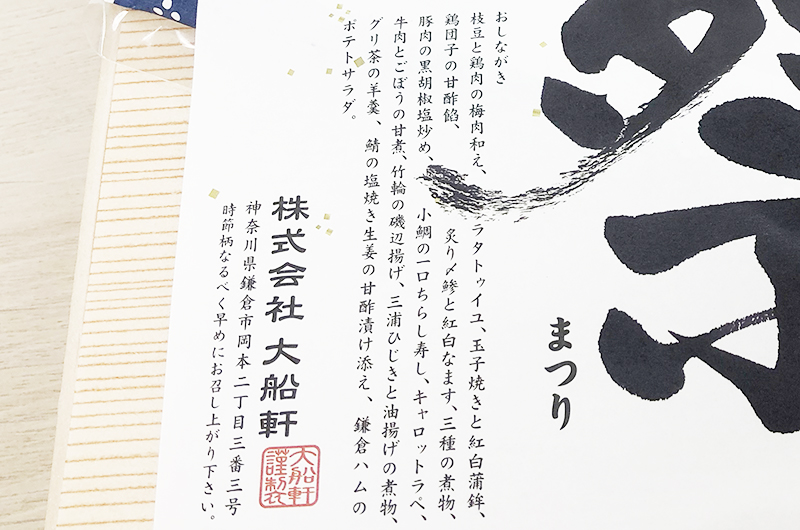 祭
まつり
おしながき
枝豆と鶏肉の梅肉和え、ラタトゥイユ、玉子焼きと紅白蒲鉾、
鶏団子の甘酢餡、炙り〆鯵と紅白なます、三種の煮物、
豚肉の黒胡椒塩炒め、小鯛の一口ちらし寿し、キャロットラペ、
牛肉とごぼうの甘煮、竹輪の磯辺揚げ、三浦ひじきと油揚げの煮物、
グリ茶の羊羹、鯖の塩焼き生姜の甘酢漬け添え、鎌倉ハムの
ポテトサラダ。
株式会社大船軒
神奈川県鎌倉市岡本二丁目三番三号
時節柄なるべく早めにお召し上がり下さい。
大船軒
謹製